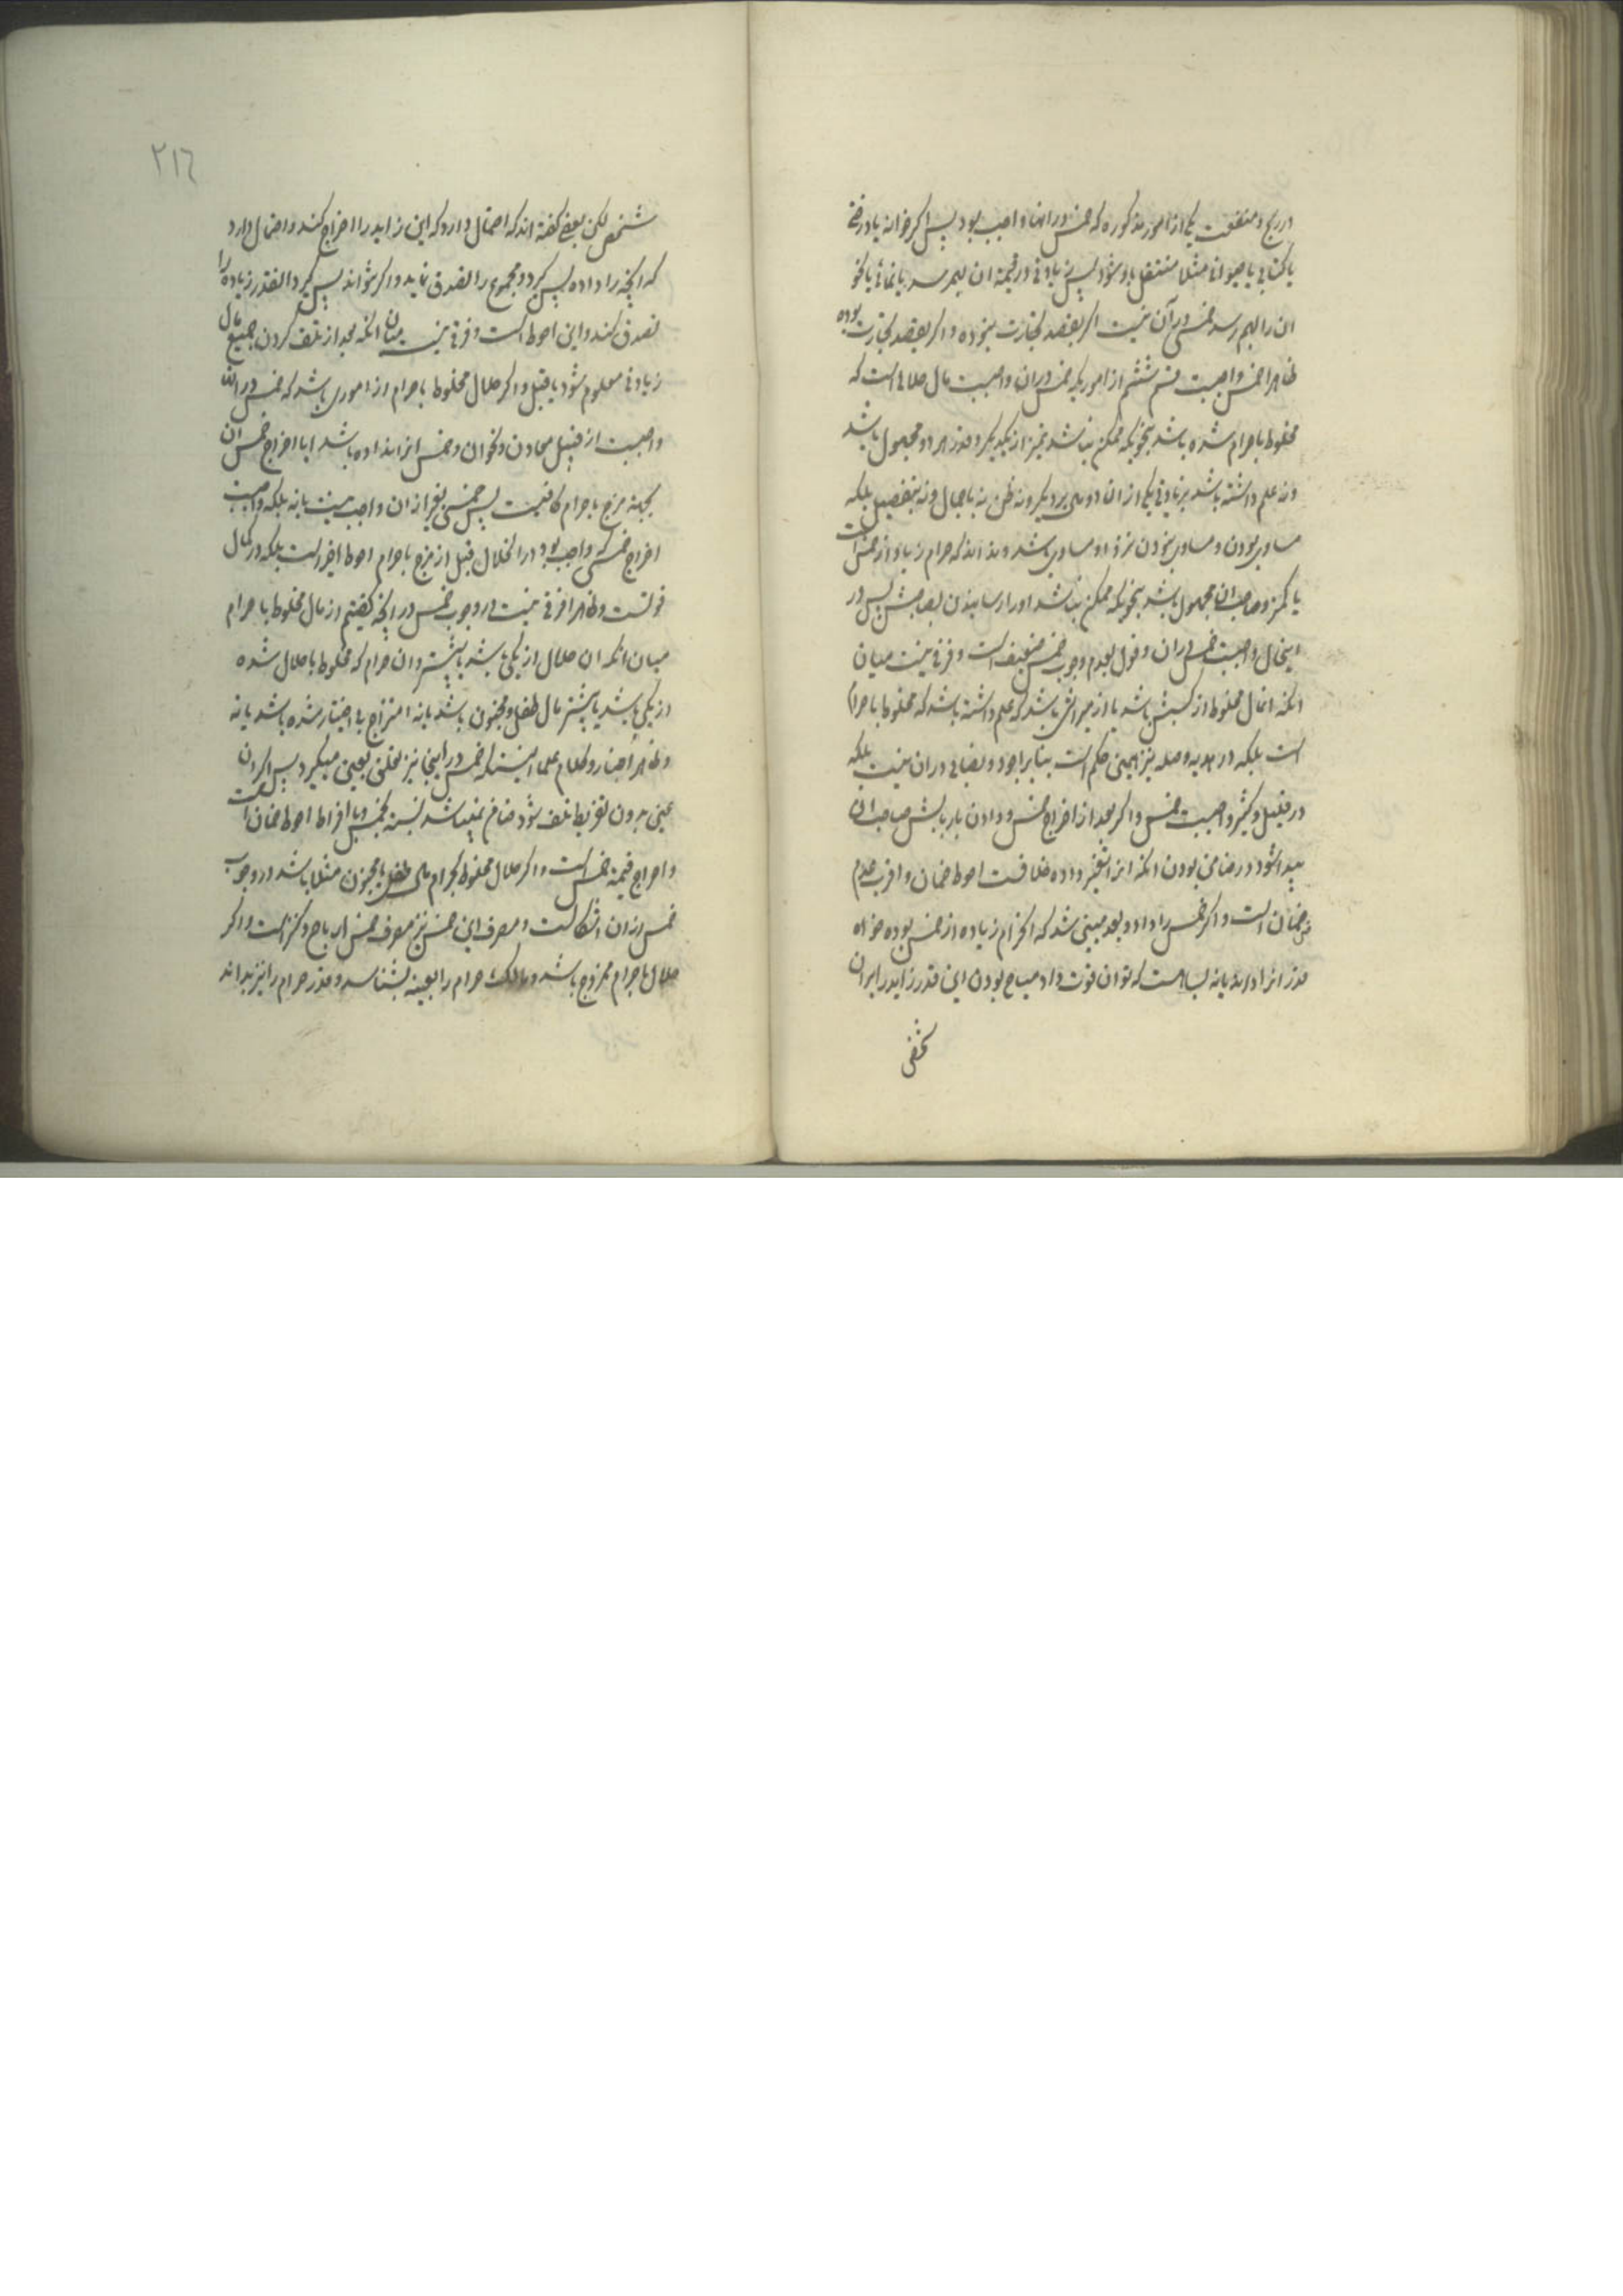 در ربح و منفعت یکی از امور مذکوره که خمس در انها واجب بود پس اگر خانه یا درختی
یا کتابی یا حیوانی مثلا منتقل باو شود پس زیادتی در قیمة ان بهم رسد یا نمائی یا نحو
ان را بهم رسد خمس در آن نیست اگر بقصد تجارت نبوده و اگر بقصد تجارت بوده
ظاهرا خمس واجبست قسم ششم از اموریکه خمس در ان واجبست مال حلالی است که
مخلوط بحرام شده باشد بنحویکه ممکن نباشد تمیز از یکدیگر و قدر هر دو مجهول باشد
و نه علم داشته باشد بزیادتی یکی از ان دو مال بر دیگر و نه ظن نه باجمال و نه بتفصیل بلکه
مساوی بودن و مساوی نبودن نزد او مساوی باشد و نداند که حرام زیاد از خمس است
یا کمتر و صاحب ان مجهول باشد بنحویکه ممکن نباشد او را رسانیدن بصاحبش پس در
اینحال واجبست خمس در ان و قول بعدم وجوب خمس ضعیف است و فرقی نیست میان
انکه انمال مخلوط از کسبش باشد یا از میراثی باشد که علم داشته باشد که مخلوط با حرام
است بلکه در هدیه و صله نیز همین حکم است بنابر اجود و نصابی در ان نیست بلکه
در قلیل و کثیر واجبست خمس و اگر بعد از اخراج خمس و دادن باربابش صاحب ان
پیدا شود در ضامن بودن انکه انرا تغییر داده خلافست احوط ضمان و اقرب عدم
ضمان است و اگر خمس را داد و بعد مبین شد که انحرام زیاده از خمس بوده خواه
قدر انرا داند یا نه بسا هست که توان قوت داد مباح بودن این قدر زاید را بر ان
شخص
٢١٦
شخص لکن بعضی گفته اند که احتمال دارد که این زاید را اخراج کند و احتمال دارد
که انچه را داده پس گیرد و مجموع را تصدق نماید و اگر نتواند پس گیرد انقدر زیاده را
تصدق کند و این احوط است و فرقی نیست میان انکه بعد از تلف کردن جمیع مال
زیادتی معلوم شود یا قبل و اگر حلال مخلوط با حرام از اموری باشد که خمس در انها
واجبست از قبیل معادن و نحو ان و خمس انرا نداده باشد ایا اخراج خمس ان
بجهة مزج با حرام کافیست پس خمسی بغیر از ان واجب نیست یا نه بلکه واجبست
اخراج خمسی که واجب بود در انحلال قبل از مزج با حرام احوط اخیر است بلکه در کمال
قوتست و ظاهرا فرقی نیست در وجوب خمس در انچه گفتیم از مال مخلوط با حرام
میان انکه ان حلال از یکی باشد یا بیشتر و ان حرام که مخلوط با حلال شده
از یکی باشد یا بیشتر مال طفل و مجنون باشد یا نه امتزاج بی اختیار شده باشد یا نه
و ظاهر اخبار و کلام علما اینستکه خمس در اینجا نیز تعلق بعین میگیرد پس اگر ان
عین بدون تفریط تلف شود ضامن نمیباشد نسبة بخمس و با افراط احوط ضمان است
و اخراج قیمة خمس است و اگر حلال مخلوط بحرام مال طفل یا مجنون مثلا باشد در وجوب
خمس از ان اشکالست و مصرف این خمس نیز مصرف خمس ارباح و کنز است و اگر
حلال با حرام ممزوج باشد و مالک حرام را بعینه بشناسد و قدر حرام را نیز بداند